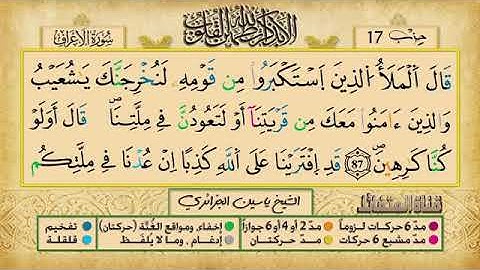 حِزْب 17
أَلَا بِذِكْرِ اللَّهِ تَطْمَئِنُّ الْقُلُوبُ
سُورَةُ الْأَعْرَافِ
قَالَ اَلْمَلَأُ اُلذِينَ اَسْتَكْبَرُواْ مِن قَوْمِهِۦ لَنُخْرِجَنَّكَ يَٰشُعَيْبُ
وَالذِينَ ءَامَنُواْ مَعَكَ مِن قَرْيَتِنَآ أَوْ لَتَعُودُنَّ فِي مِلَّتِنَاۖ قَالَ أَوَلَوْ
كُنَّا كَٰرِهِينَۖ 87 قَدِ اِفْتَرَيْنَا عَلَى اَللَّهِ كَذِباً اِنْ عُدْنَا فِي مِلَّتِكُم
الشيخ ياسين الجزائري
مدّ 6 حركات لزوماً مدّ 2 أو 4 أو 6 جوازاً إخفاء، ومواقع الغُنَّة (حركتان) تفخيم
مدّ مشبع 6 حركات مدّ حركتان إدغام، وما لا يُلفَظ قلقلة